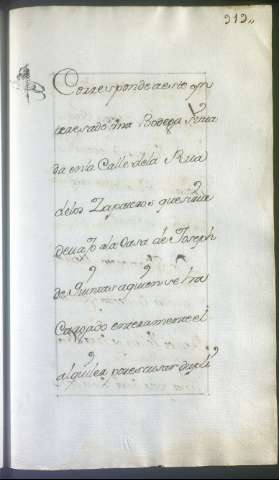 313,,
Corresponde a este yn
teresado Una Bodega Situa
da en la Calle de la Rua
de los Zapateros que sirue
de vajo a la Casa de Joseph
de Juntas a quien se ha
Cargado enteramente el
alquiler por estar